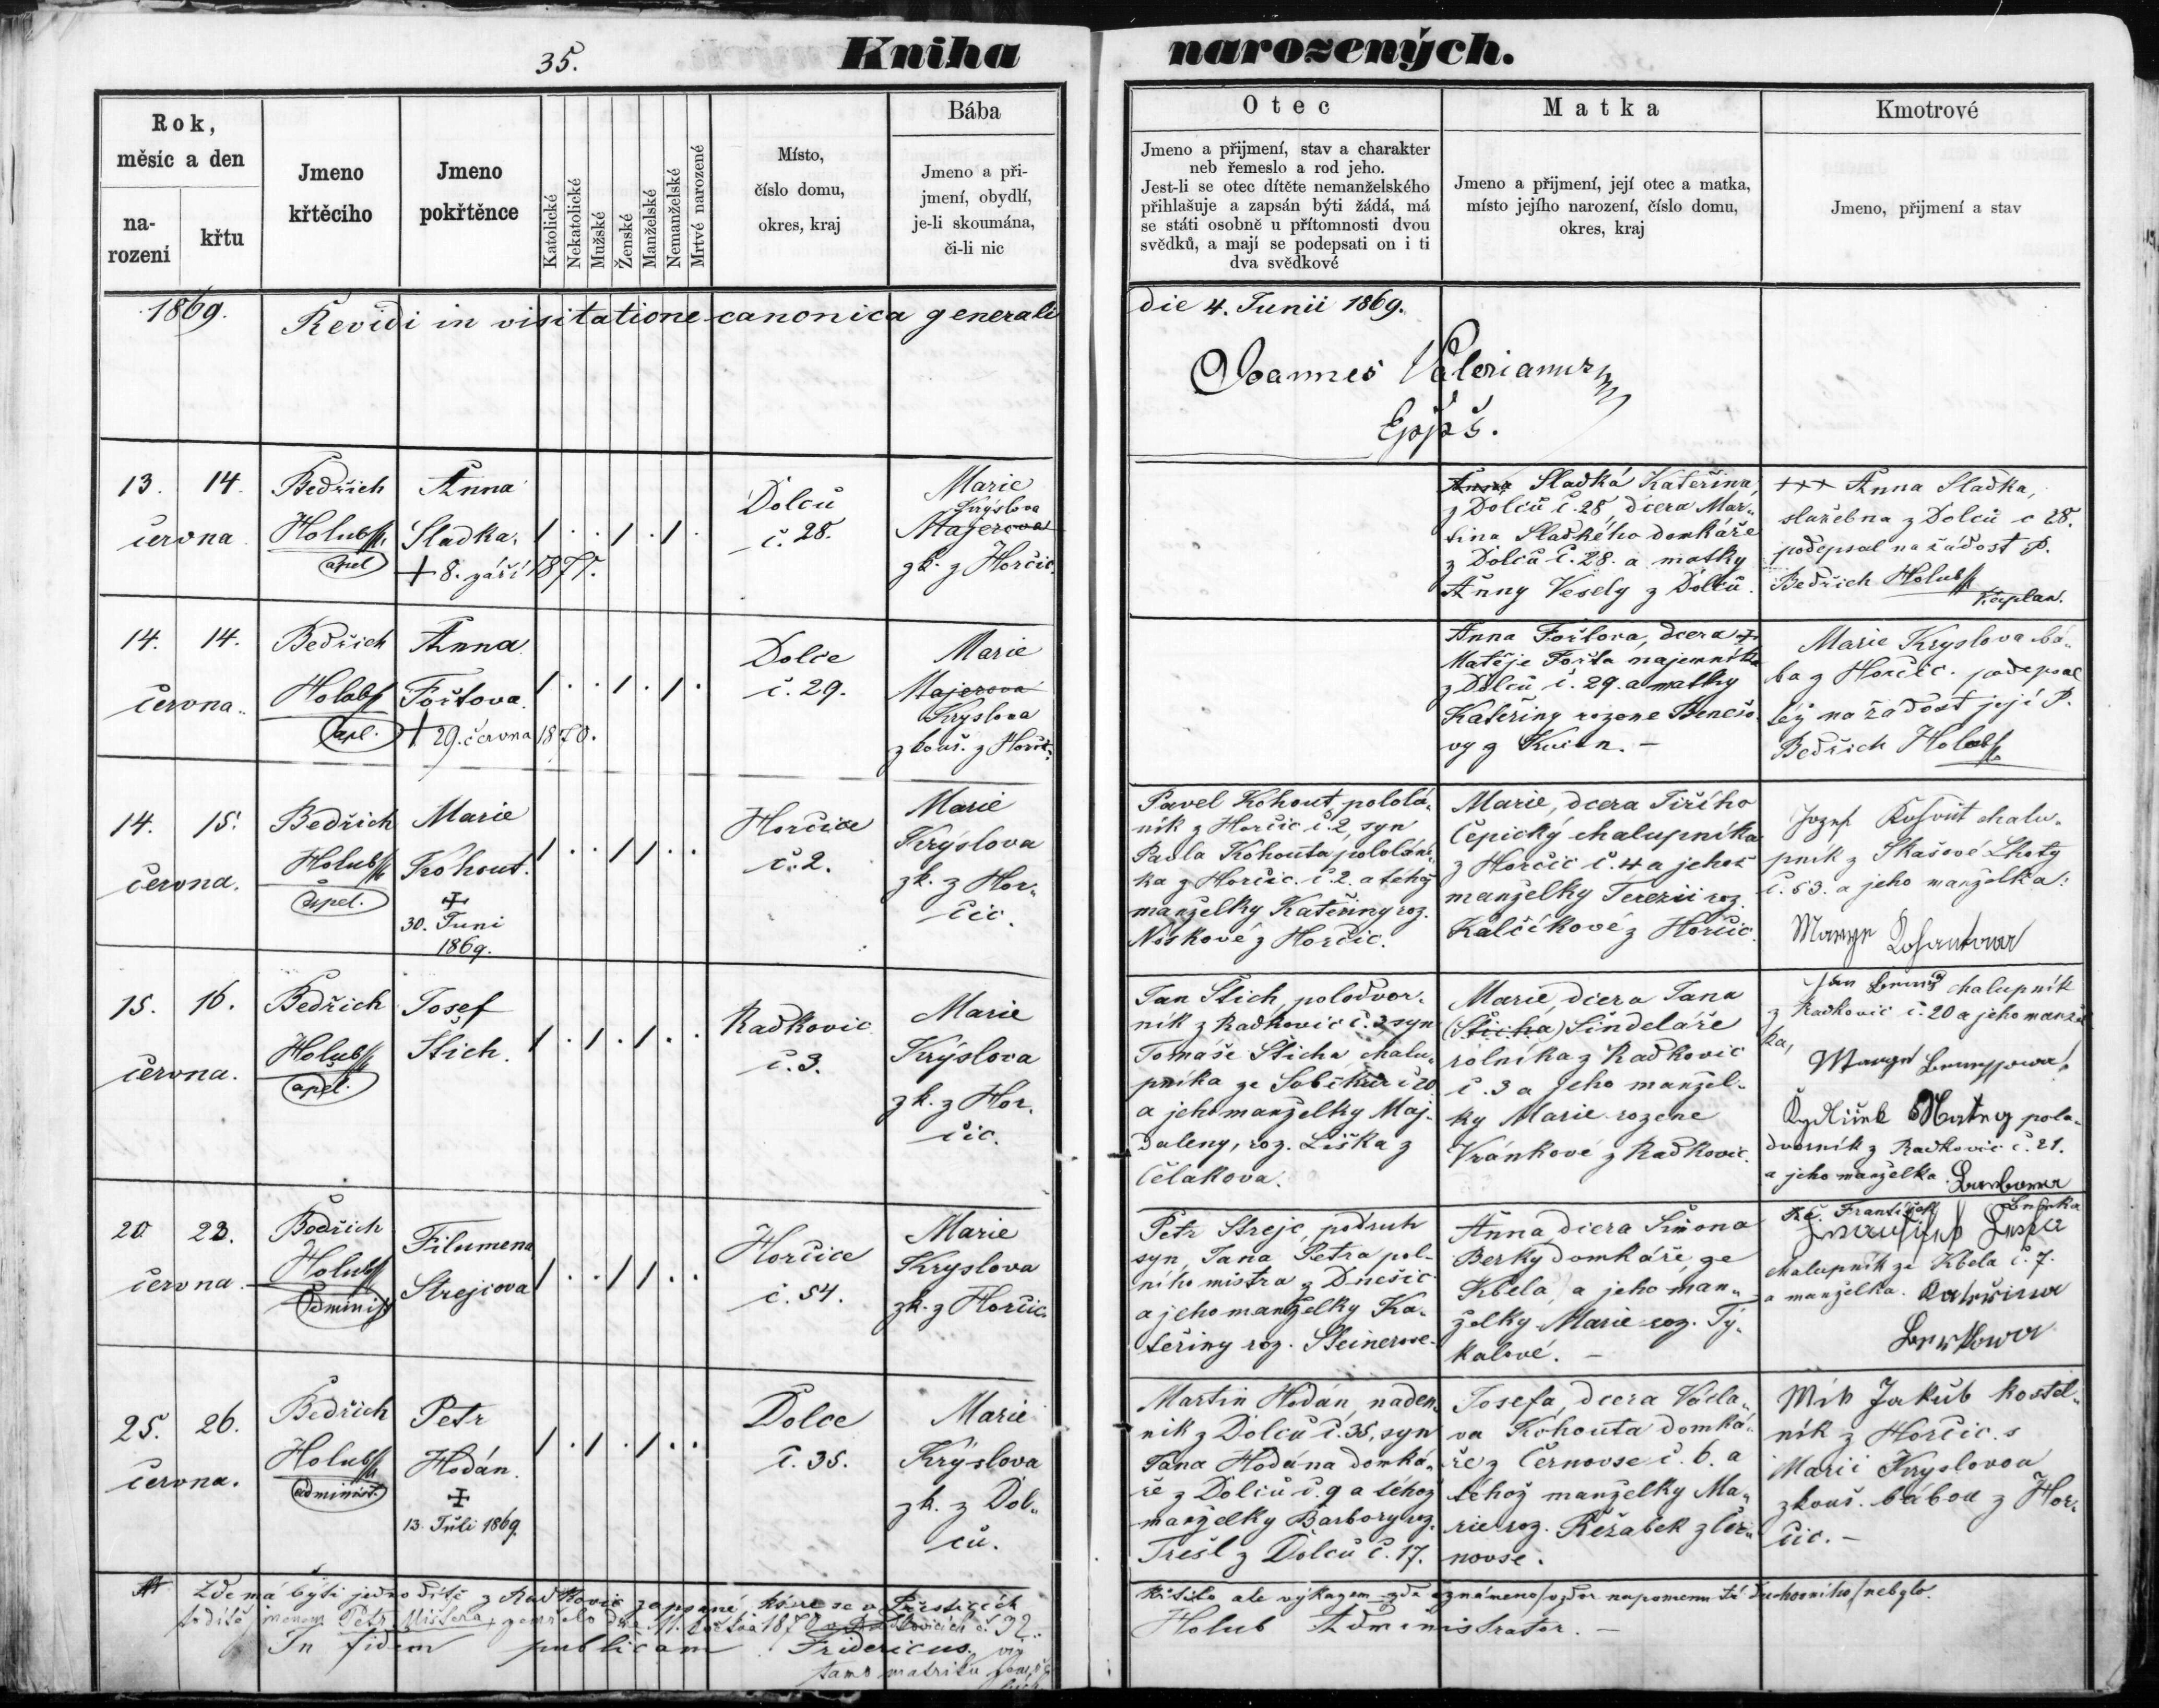 35.
Kniha narozených.
Rok,
měsíc a den
na-
rození
křtu
Jmeno
křtěcího
Jmeno
pokřtěnce
Katolické
Nekatolické
Mužské
Ženské
Manželské
Nemanželské
Mrtvé narozené
Místo,
číslo domu,
okres, kraj
Bába
Jmeno a při-
jmení, obydlí,
je-li skoumána,
či-li nic
Otec
Jmeno a přijmení, stav a charakter
neb řemeslo a rod jeho.
Jest-li se otec dítěte nemanželského
přihlašuje a zapsán býti žádá, má
se státi osobně u přítomnosti dvou
svědků, a mají se podepsati on i ti
dva svědkové
Matka
Jmeno a přijmení, její otec a matka,
místo jejího narození, číslo domu,
okres, kraj
Kmotrové
Jmeno, přijmení a stav
1869.
Revidi in visitatione canonica generali
die 4. Junii 1869.
Joannes Valerianus
Eppš.
13. 14.
června
Bedřich
Holub
Anna
Sladka.
+ 8. září 1871.
Dolců
č. 28.
Marie
Kryslova
Majerova
zk. z Horčic.
Anna Sladká Kateřina
z Dolců č. 28, dcera Mar-
tina Sladkého domkáře
z Dolců č. 28. a matky
Anny Vesely z Dolců.
+++ Anna Sladka,
služebna z Dolců č 28.
podepsal na žádost P.
Bedřich Holub
Kaplan.
14. 14.
června.
Bedřich
Holub
Anna
Foštova.
+ 29. června 1870.
Dolce
č. 29.
Marie
Majerova
Kryslova
zkouš. z Horčic.
Anna Foštova, dcera +
Matěje Fošta najemníka
z Dolců č. 29. a matky
Kateřiny rozene Benešo-
vy z
Marie Kryslova bá-
ba z Horčic. podepsal
též na žádost její P.
Bedřich Holub
14. 15.
června.
Bedřich
Holub
Marie
Kohout.
30. Juni
1869.
Horčice
č. 2.
Marie
Krýslova
zk. z Hor-
čic.
Pavel Kohout, pololá-
ník z Horčic č. 2, syn
Pavla Kohouta, pololání-
ka z Horčic. č. 2. a téhož
manželky Kateřiny roz.
Noskové z Horčic.
Marie, dcera Jiřího
Čepický chalupníka
z Horčic č. 4 a jehož
manželky Terezii roz.
Kalčíkové z Horčic.
Jozef Kohout chalu-
pník z Skašové Lhoty
č. 53. a jeho manželka:
15. 16.
června.
Bedřich
Holub
Josef
Štich.
Radkovic
č. 3.
Marie
Krýslova
zk. z Hor.
čic.
Jan Štich, polodvor-
ník z Radkovic č. 3 syn
Tomáše Šticha chalu-
pníka ze č 20
a jeho manželky Maj-
daleny, roz. Liška z
Čelakova.
Marie, dcera Jana
(Šticha) Šindeláře
rolníka z Radkovic
č. 3 a jeho manžel-
ky Marie rozene
Vránkové z Radkovic.
Jan chalupník
z Radkovic č. 20 a jeho manžel
ka,
pola-
dvorník z Radkovic č. 21.
a jeho manželka. Barbora
20 23.
června.
Bedřich
Holub
Administ
Filumena
Strejcova
Horčice
č. 54.
Marie
Kryslova
zk. z Horčic.
Petr Strejc, podruh
syn, Jana Petra pol-
ního mistra z Dnešic
a jeho manželky Ka-
teřiny roz. Steinerove.
Anna dcera Šimona
Berky domkáře, ze
Kbela, a jeho man-
želky Marie roz. Ty-
kalové. —
František
chalupník ze Kbela č. 7.
a manželka. Kateřina
25. 26.
června.
Bedřich
Holub
administ.
Petr
Hodán.
13. Juli 1869.
Dolce
č. 35.
Marie
Krýslova
zk. z Dol-
ců.
Martin Hodán, naden-
nik z Dolců č. 35, syn
Jana Hodána domká-
ře z Dolců č. 9 a téhož
manželky Barbory roz.
Trešl z Dolců č. 17.
Josefa, dcera Václa-
va Kohouta domká-
ře z Černovse č. 6. a
tehož manželky Ma-
rie roz. Řežabek z Čer-
novse.
Mik Jakub kostel-
ník z Horčic. s
Marii Kryslovou
zkouš. bábou z Hor-
čic. —
Zde má býti jedno dítě z Radkovic zapsané, které se v Přesticích
křtilo ale výkazem zde oznámeno nebylo.
In fidem publicam Fridericus
Holub Administrator. —